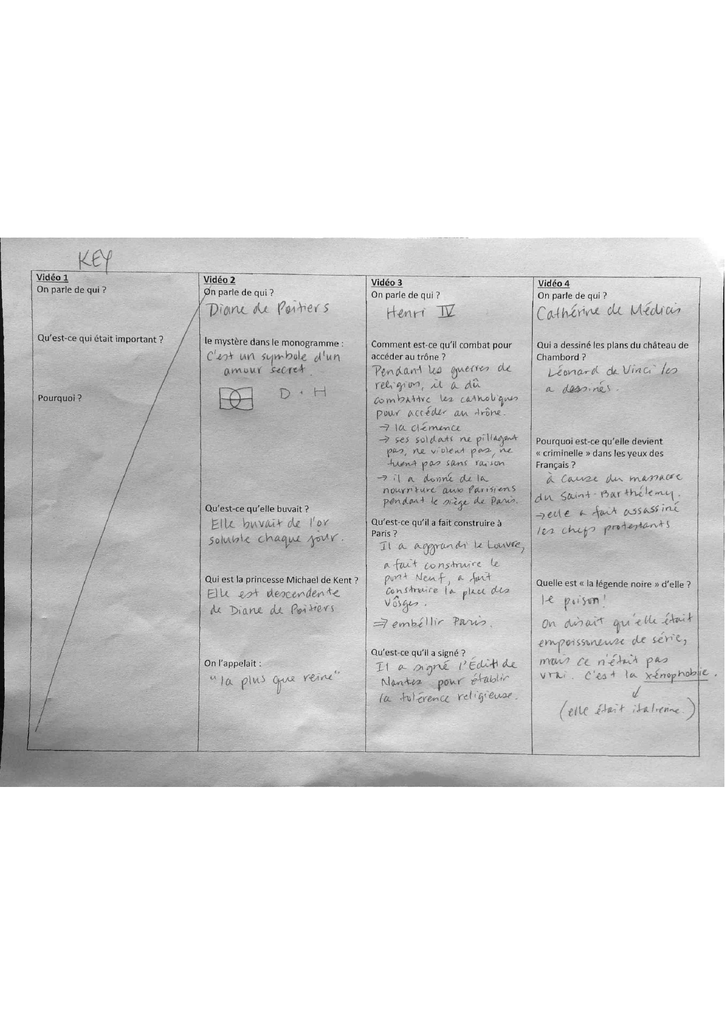 KEY
Vidéo 1
On parle de qui ?
Qu'est-ce qui était important ?
Pourquoi ?
Vidéo 2
On parle de qui ?
Diane de Poitiers
le mystère dans le monogramme :
C'est un symbole d'un
amour secret.
D + H
Qu'est-ce qu'elle buvait ?
Elle buvait de l'or
soluble chaque jour.
Qui est la princesse Michael de Kent ?
Elle est descendente
de Diane de Poitiers
On l'appelait :
"la plus que reine"
Vidéo 3
On parle de qui ?
Henri IV
Comment est-ce qu'il combat pour
accéder au trône ?
Pendant les guerres de
religion, il a dû
combattre les catholiques
pour accéder au trône.
→ la clémence
→ ses soldats ne pillagent
pas, ne violent pas, ne
tuent pas sans raison
→ il a donné de la
nourriture aux Parisiens
pendant le siège de Paris.
Qu'est-ce qu'il a fait construire à
Paris ?
Il a aggrandi le Louvre,
a fait construire le
pont Neuf, a fait
construire la place des
Vôsges.
⇒ embéllir Paris.
Qu'est-ce qu'il a signé ?
Il a signé l'Édit de
Nantes pour établir
la tolérence religieuse.
Vidéo 4
On parle de qui ?
Cathérine de Médicis
Qui a dessiné les plans du château de
Chambord ?
Léonard de Vinci les
a dessinés.
Pourquoi est-ce qu'elle devient
« criminelle » dans les yeux des
Français ?
à cause du massacre
du Saint-Barthélemy.
→ elle a fait assassiné
les chefs protestants
Quelle est « la légende noire » d'elle ?
le poison!
On disait qu'elle était
empoissoneuse de série,
mais ce n'était pas
vrai. C'est la xénophobie.
(elle était italienne.)